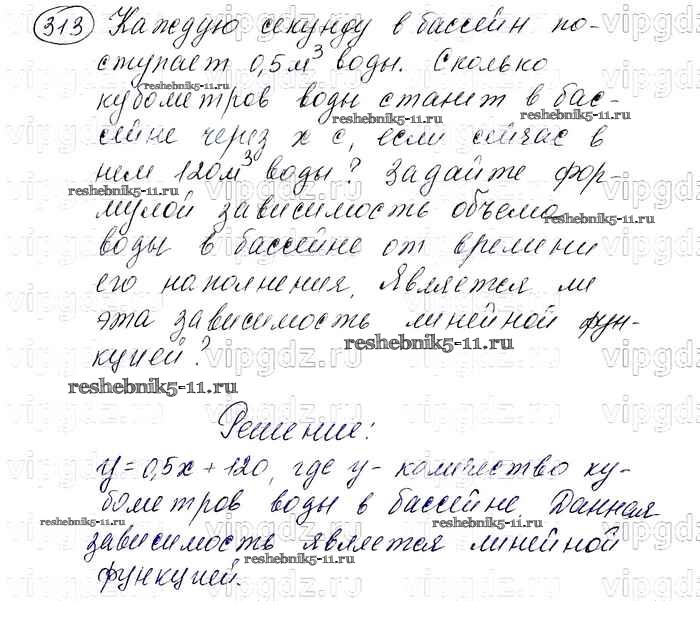 313 Каждую секунду в бассейн по-
ступает 0,5 м³ воды. Сколько
reshebnik5-11.ru
кубометров воды станет в бас-
reshebnik5-11.ru
сейне через x с, если сейчас в
нем 120 м³ воды? Задайте фор-
reshebnik5-11.ru
мулой зависимость объема
reshebnik5-11.ru
воды в бассейне от времени
его наполнения. Является ли
эта зависимость линейной фун-
reshebnik5-11.ru
кцией?
reshebnik5-11.ru
Решение:
y = 0,5x + 120, где y - количество ку-
бометров воды в бассейне Данная
reshebnik5-11.ru
reshebnik5-11.ru
зависимость является линейной
reshebnik5-11.ru
функцией.
vipgdz.ru